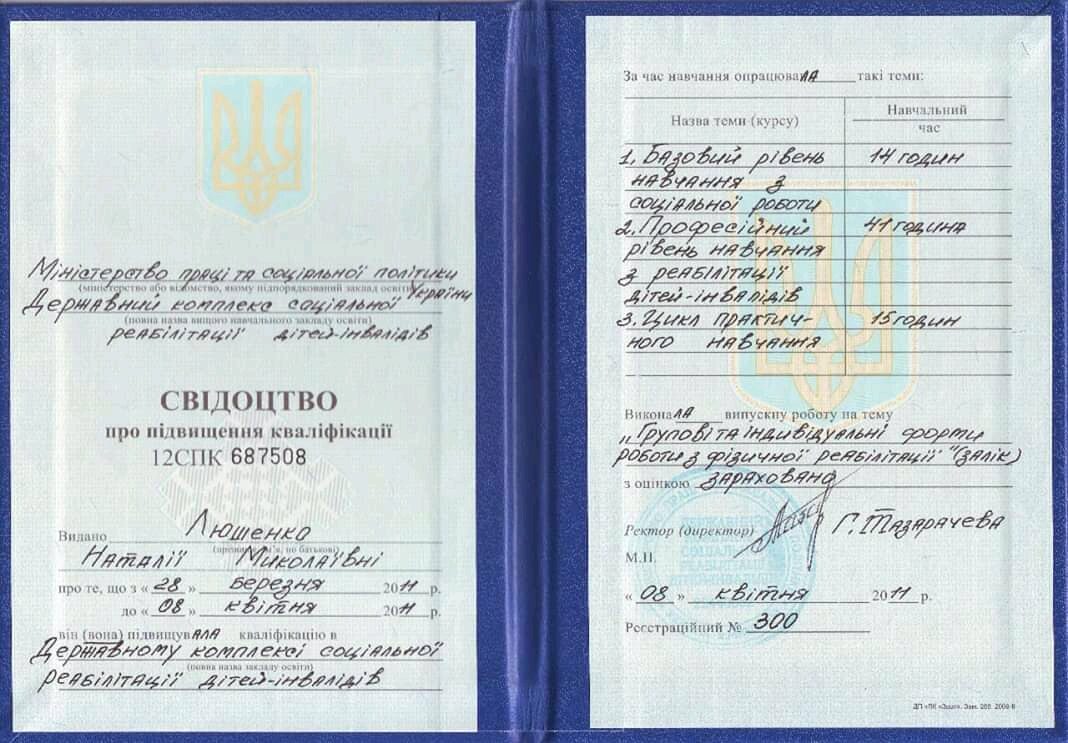 Міністерство праці та соціальної політики
(міністерство або відомство, якому підпорядкований заклад освіти)
України
Державний комплекс соціальної
(повна назва вищого навчального закладу освіти)
реабілітації дітей-інвалідів
СВІДОЦТВО
про підвищення кваліфікації
12СПК 687508
Видано Люшенко
(прізвище, ім'я, по батькові)
Наталії Миколаївні
про те, що з « 28 » березня 2011 р.
до « 08 » квітня 2011 р.
він (вона) підвищувала кваліфікацію в
Державному комплексі соціальної
(повна назва закладу освіти)
реабілітації дітей-інвалідів
За час навчання опрацювала такі теми:
Назва теми (курсу) Навчальний
час
1. Базовий рівень 14 годин
навчання з
соціальної роботи
2. Професійний 41 година
рівень навчання
з реабілітації
дітей-інвалідів
3. Цикл практич- 15 годин
ного навчання
Виконала випускну роботу на тему
„Групові та індивідуальні форми
роботи з фізичної реабілітації" (залік)
з оцінкою зараховано
Ректор (директор) Г. Тазарачева
М.П.
« 08 » квітня 2011 р.
Реєстраційний № 300